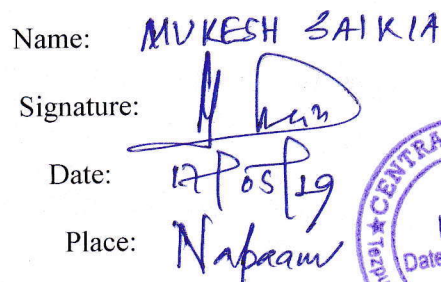 Name: MUKESH SAIKIA
Signature:
Date: 17/05/19
Place: Napaam
CENTRA
Tezpu
Date